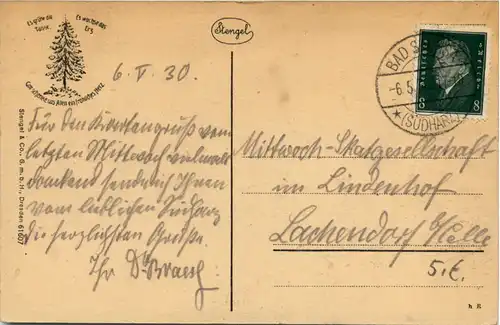 Es grüne die Tanne,
Es wachse das Erz
Gott schenke uns Allen ein fröhliches Herz
Stengel
6. V. 30.
Für den Kartengruß vom
letzten Mittwoch vielmals
dankend sende ich Ihnen
vom lieblichen Südharz
die herzlichsten Grüße.
Ihr Dr
Stengel & Co., G. m. b. H., Dresden 61607
BAD S
-6.5.
(SÜDHARZ)
Deutsches Reich
8 8
Mittwoch-Skatgesellschaft
im Lindenhof
Lachendorf b/Celle